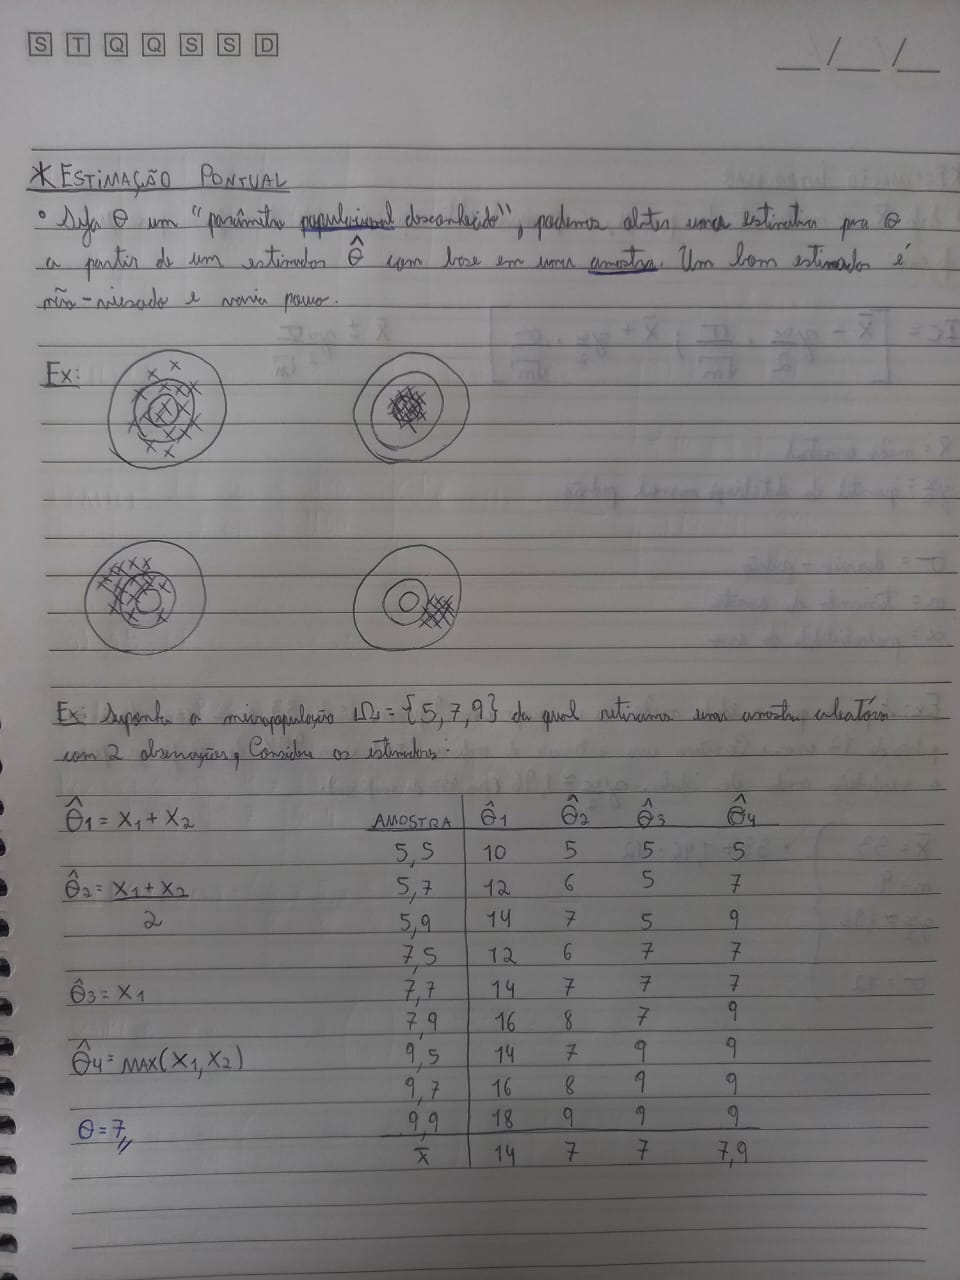 S T Q Q S S D
__/__/__
* ESTIMAÇÃO PONTUAL
• Seja θ um "parâmetro populacional desconhecido", podemos obter uma estimativa para θ
a partir de um estimador θ̂ com base em uma amostra. Um bom estimador é
não-viesado e varia pouco.
Ex:
Ex: Suponha a minipopulação Ω = {5, 7, 9} da qual retiramos uma amostra aleatória
com 2 observações, Considere os estimadores:
θ̂1 = X1 + X2
θ̂2 = X1 + X2
2
θ̂3 = X1
θ̂4 = MAX(X1, X2)
θ = 7,,
AMOSTRA θ̂1 θ̂2 θ̂3 θ̂4
5,5 10 5 5 5
5,7 12 6 5 7
5,9 14 7 5 9
7,5 12 6 7 7
7,7 14 7 7 7
7,9 16 8 7 9
9,5 14 7 9 9
9,7 16 8 9 9
9,9 18 9 9 9
x̄ 14 7 7 7,9